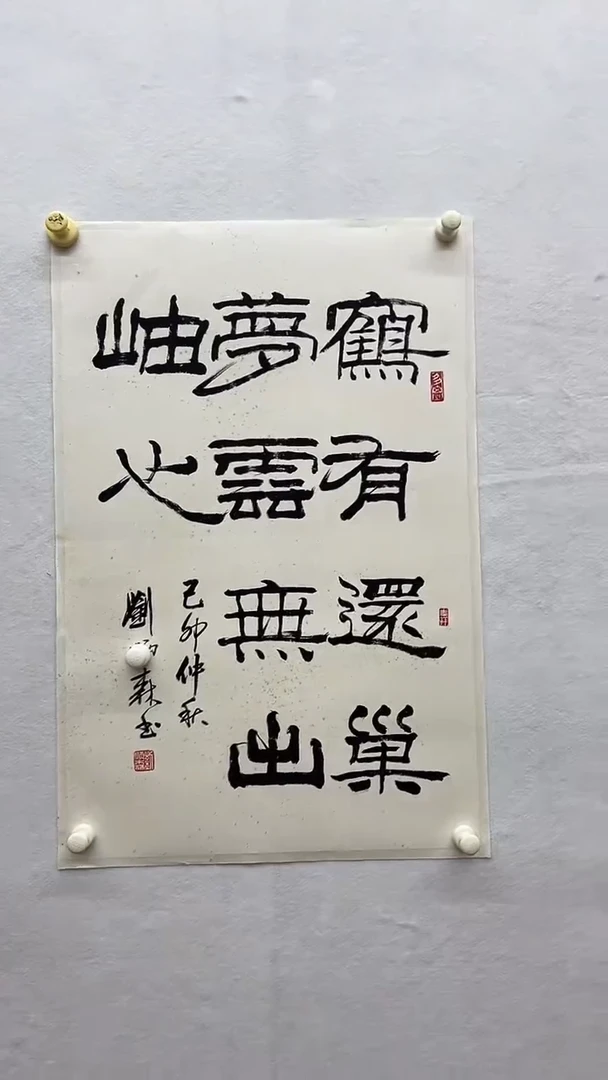 鶴有還巢
夢雲無出
岫心
己卯仲秋
劉森书